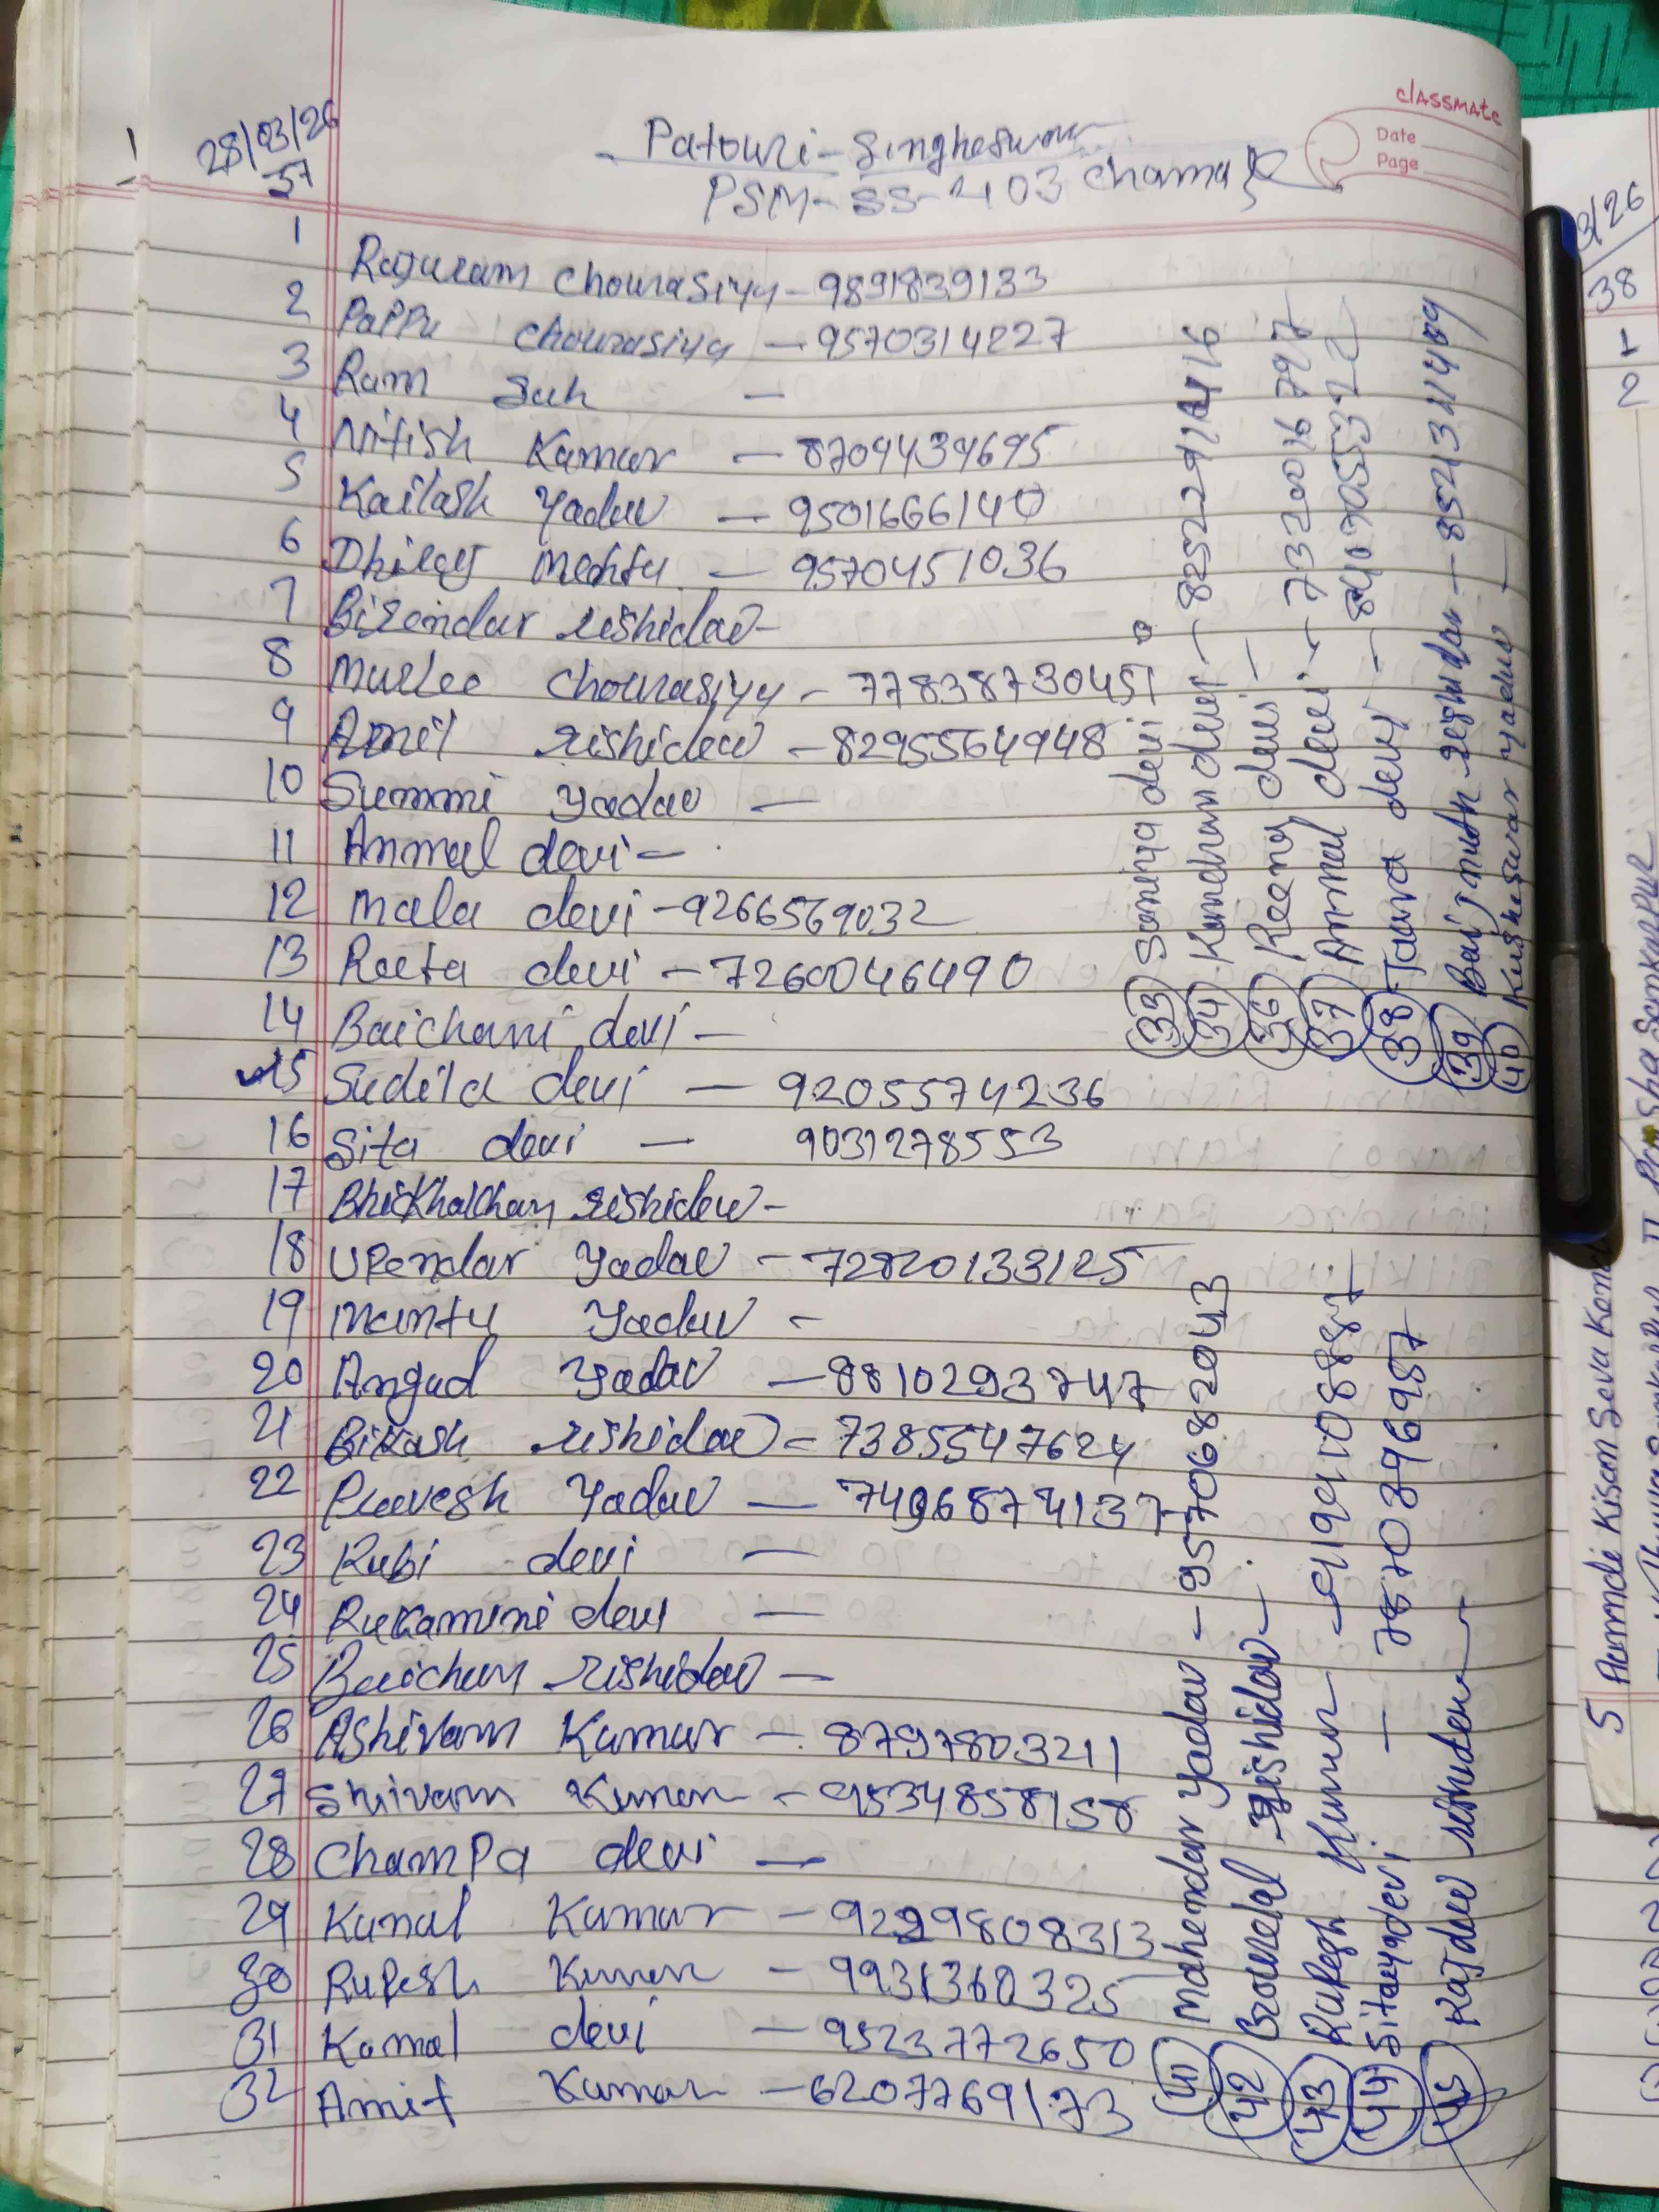 classmate
Date
Page
28/03/26
37
Patouri - Singheswar
PSM-SS-403 Chama
1 Rajuram Chourasiyy - 9891839133
2 PaPPu Chourasiya - 9570314227
3 Ram Sah -
4 Nitish Kumar - 8709439695
5 Kailash Yadav - 9501666140
6 Dhiraj Mehta - 9570451036
7 Birendar rishidav -
8 Murlee Chourasiyy - 77838730451
9 Amit rishidev - 82955564948
10 Summi Yadav -
11 Anmal devi -
12 Mala devi - 9266569032
13 Reeta devi - 7260046490
14 Baichani devi -
15 Sudila devi - 9205574236
16 Sita devi - 9031278553
17 BhikhaChan rishidev -
18 UPendar Yadav - 72820133125
19 Mantu Yadav -
20 Angad Yadav - 8810293747
21 Bikash rishidav - 7385547624
22 Pravesh Yadav - 7496874137
23 Rubi devi -
24 Rukamini devi -
25 Baichan rishidav -
26 Ashivam Kumar - 8797803211
27 Shivam Kumar - 9534858158
28 ChamPa devi -
29 Kunal Kumar - 9229808313
30 RuPesh Kumar - 9931360325
31 Komal devi - 9523772650
32 Amit Kumar - 6207769173
33 Saniya devi -
34 Kundhan devi - 8252292416
36 Reeny devi -
37 Anmal devi - 7320016797
38 Taara devy - 8409055322
39 Baijnath rishidav - 85213414
40 Kusheswar Yadav -
41 Mahendar Yadav - 9570682043
42 rishidav -
43 RuPesh Kumar - 9199108887
44 Sitaiyadevi - 7870396987
45 Rajdev rishidew
9/26
38
1
2
5 Kisan Seva
Samkarpur